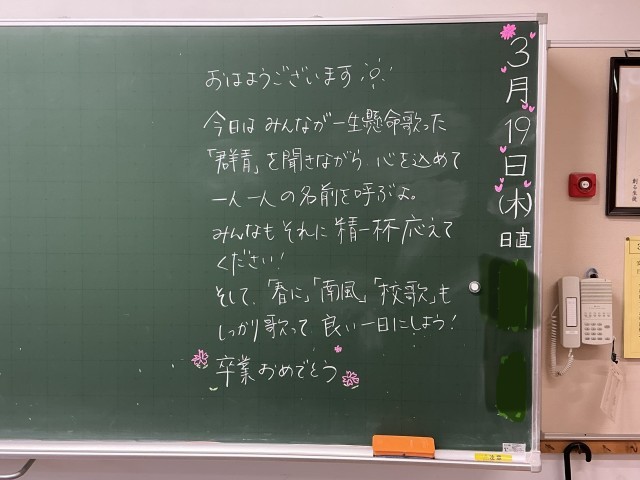 おはようございます
今日は みんなが一生懸命歌った
「群青」を聞きながら 心を込めて
一人一人の名前を呼ぶよ。
みんなもそれに精一杯応えて
ください!
そして、「春に」「南風」「校歌」も
しっかり歌って 良い一日にしよう!
卒業おめでとう
3月19日(木)
日直
創る生徒